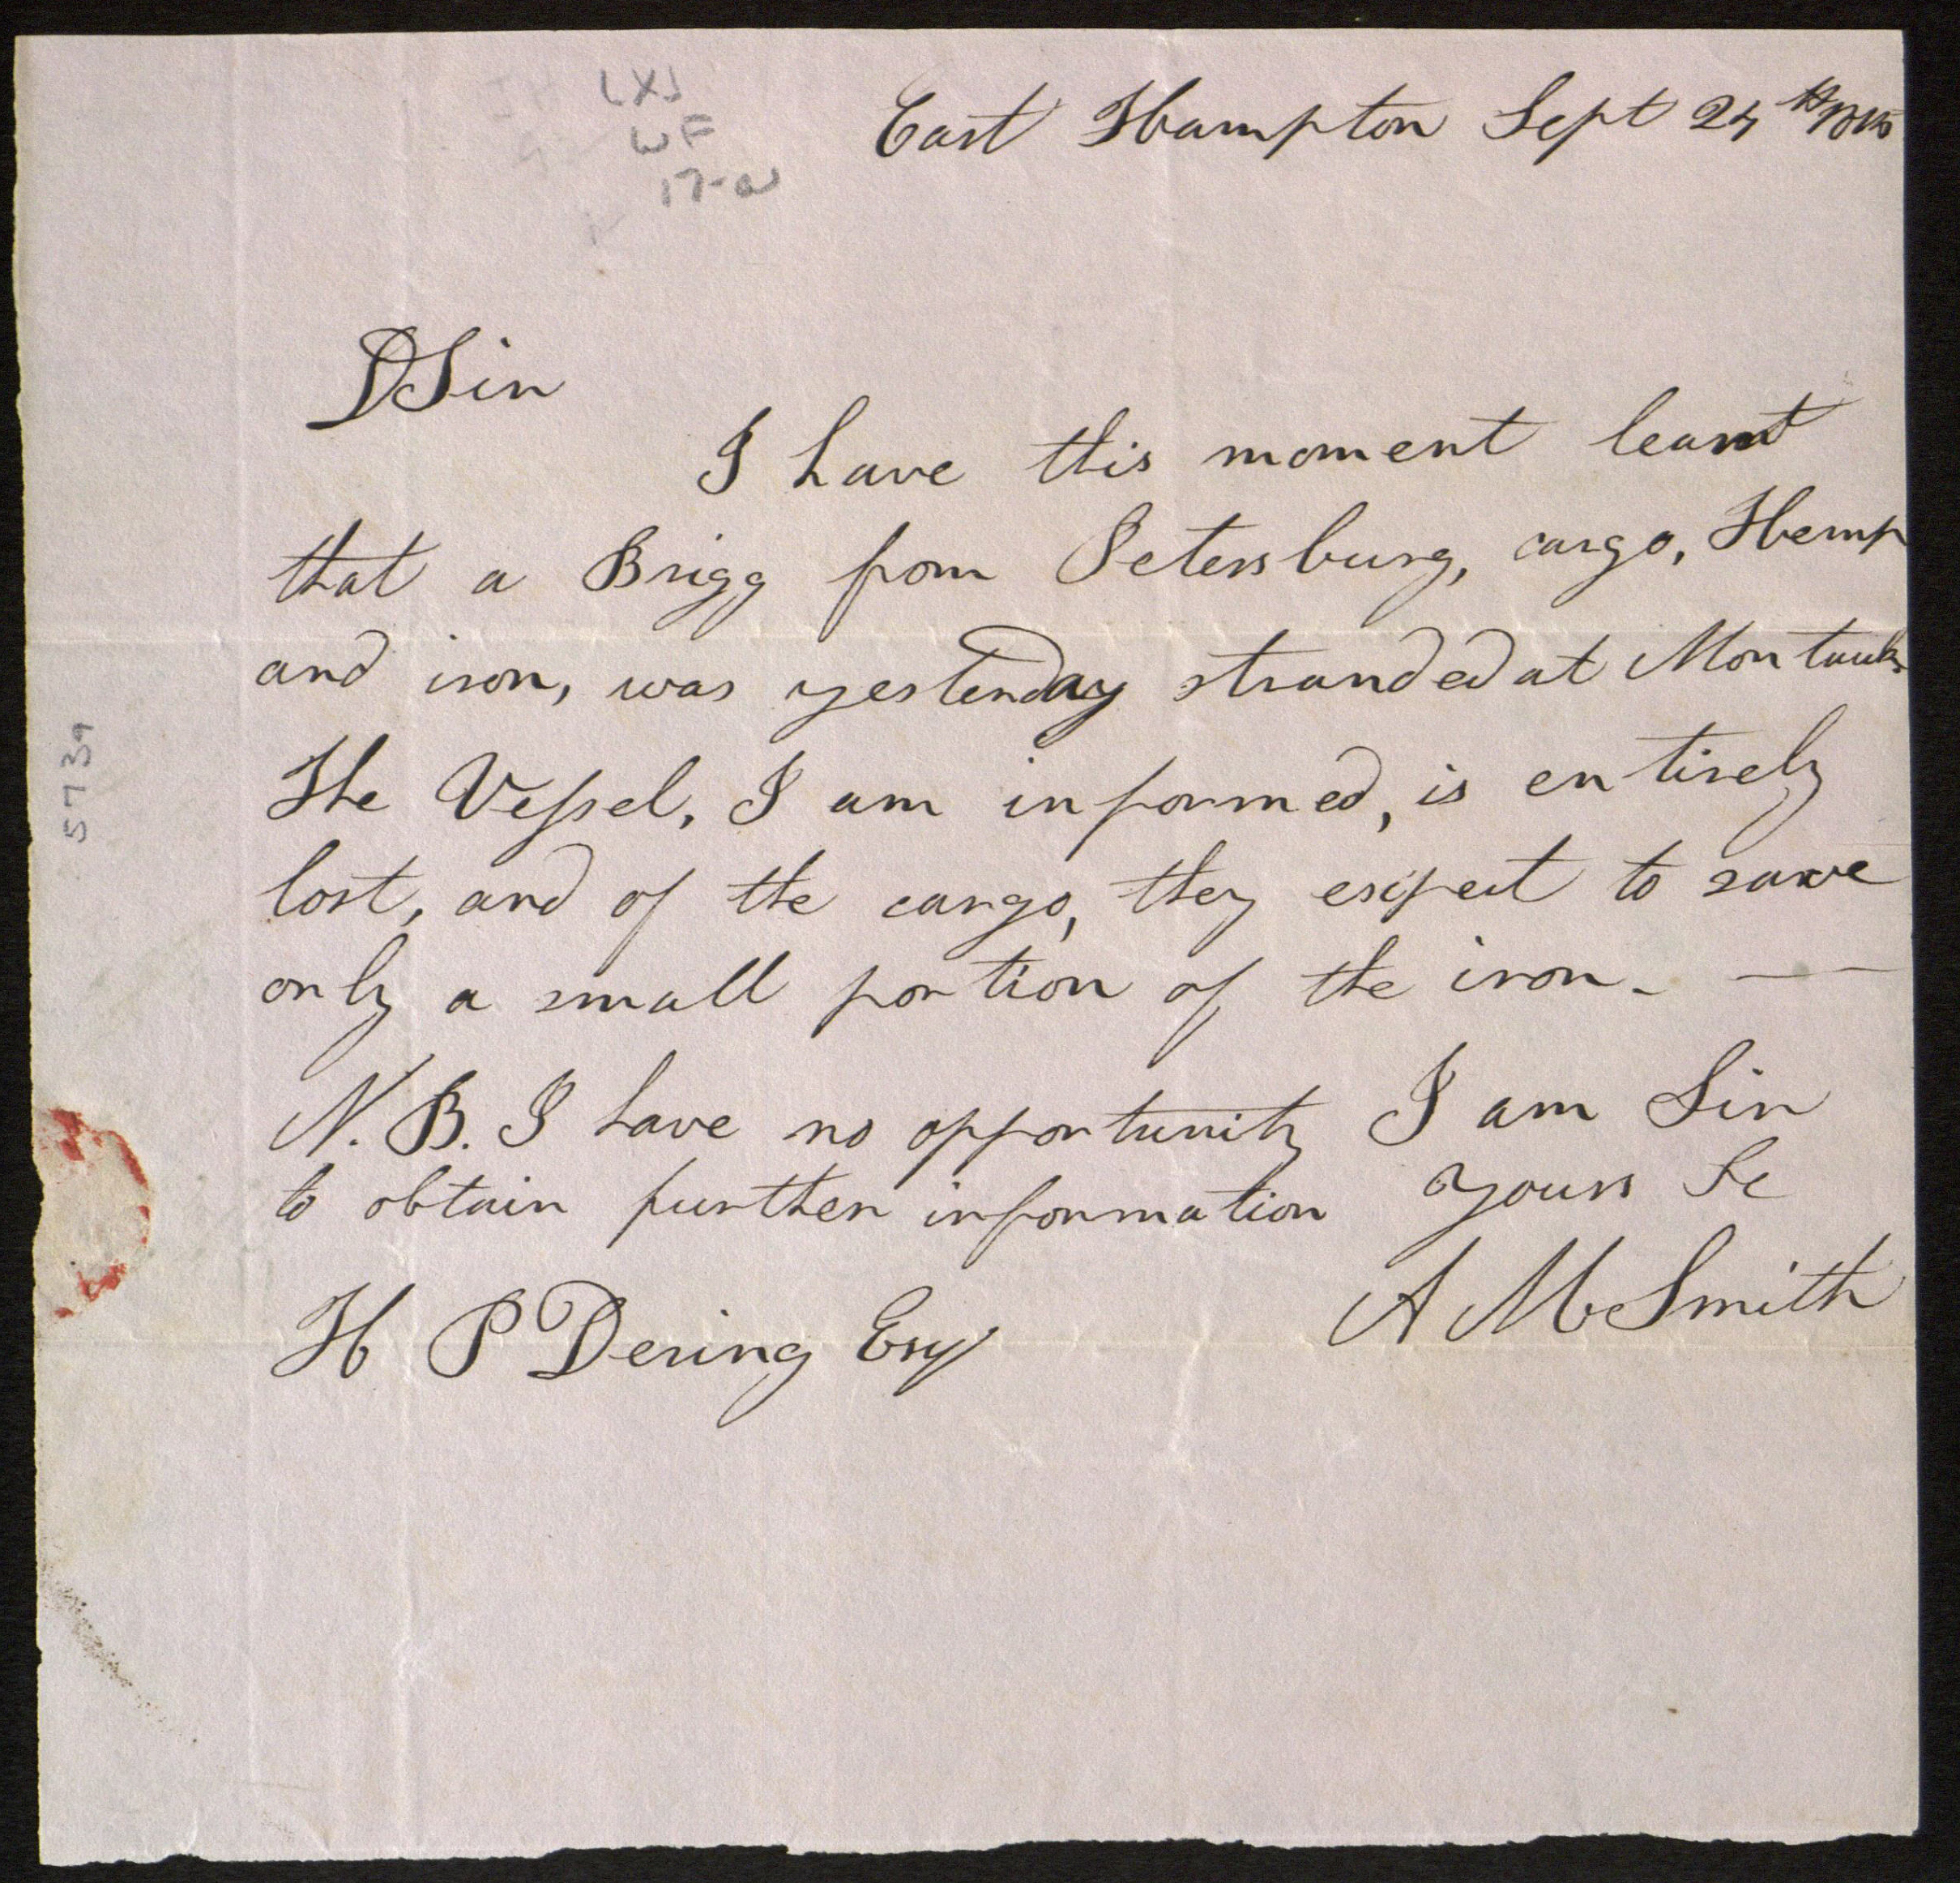 LXJ
WF
17-a
East Hampton Sept 24th
DSir
I have this moment learnt
that a Brigg from Petersburg, cargo, Hemp
and iron, was yesterday stranded at Montauk.
The Vessel, I am informed, is entirely
lost, and of the cargo, they expect to save
only a small portion of the iron. —
N. B. I have no opportunity
to obtain further information
I am Sir
yours &c
A M Smith
H P Dering Esq
5739